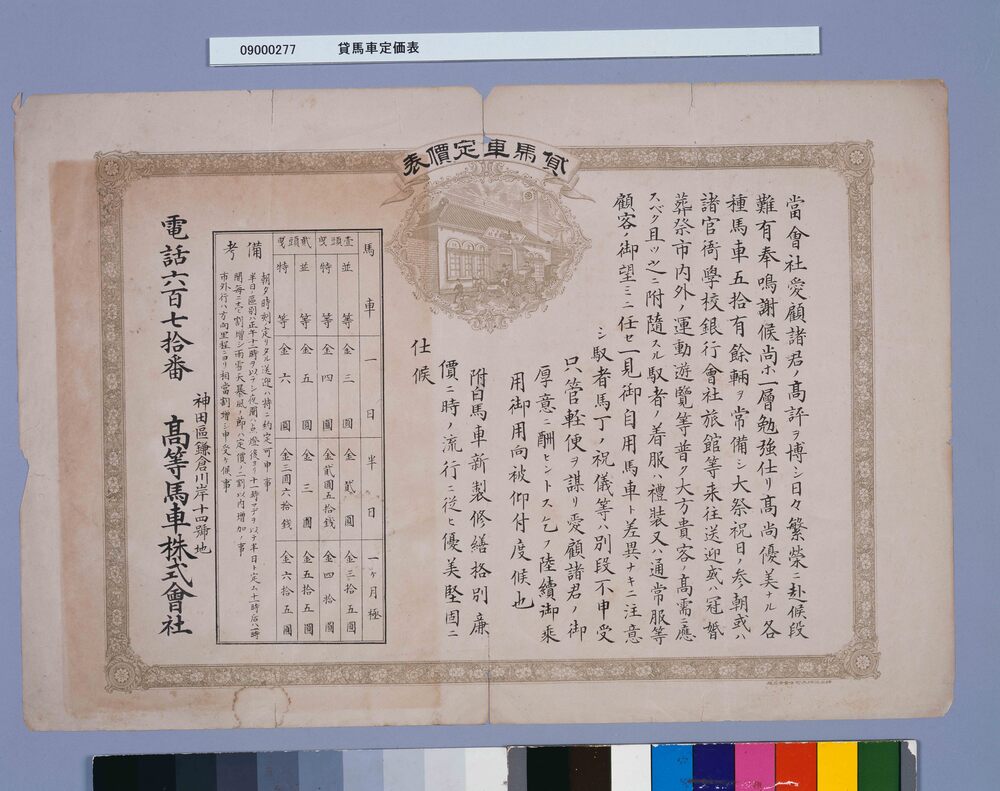 09000277 貸馬車定価表
貸馬車定價表
當會社愛顧諸君ノ髙許ヲ博シ日々繁榮ニ赴候段
難有奉鳴謝候尚ホ一層勉強仕リ髙尚優美ナル各
種馬車五拾有餘輛ヲ常備シ大祭祝日ノ参朝或ハ
諸官衙學校銀行會社旅館等来往送迎或ハ冠婚
葬祭市内外ノ運動遊覽等普ク大方貴客ノ髙需ニ應
スベク且ツ之ニ附隨スル馭者ノ着服ハ禮裝又ハ通常服等
顧客ノ御望ミニ任セ一見御自用馬車ト差異ナキニ注意
シ馭者馬丁ノ祝儀等ハ別段不申受
只管軽便ヲ謀リ愛顧諸君ノ御
厚意ニ酬ヒントス乞フ陸續御乘
用御用向被仰付度候也
附白馬車新製修繕格別廉
價ニ時ノ流行ニ從ヒ優美堅固ニ
仕候
馬車 一日 半日 一ヶ月極
壹頭曳 並等 金三圓 金貳圓 金三拾五圓
特等 金四圓 金貳圓五拾銭 金四拾圓
貳頭曳 並等 金五圓 金三圓 金五拾五圓
特等 金六圓 金三圓六拾銭 金六拾五圓
備考
朝夕時刻ノ定リタル送迎ハ特ニ約定可申事
半日ノ區別ハ正午十二時ヲ以テシ夜間ハ点燈後ヨリ十一時マデヲ以テ半日ト定ム十一時后ハ一時
間每ニ壱割增シ雨雪大暴風ノ節ハ定價ノ二割以内增加ノ事
市外行ハ方向里程ニヨリ相當割增シ申受ケ候事
神田區鎌倉川岸十四號地
電話六百七拾番 髙等馬車株式會社